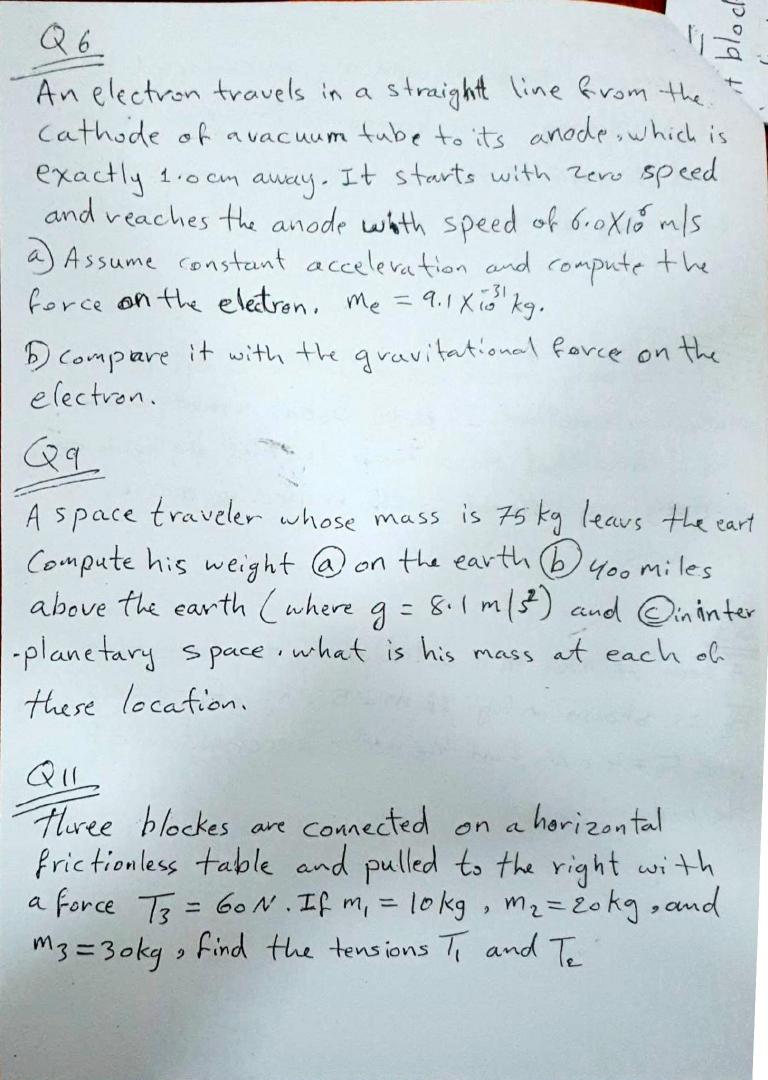 Q6
An electron travels in a straight line from the
cathode of a vacuum tube to its anode, which is
exactly 1.0 cm away. It starts with zero speed
and reaches the anode with speed of 6.0X10⁶ m/s
a) Assume constant acceleration and compute the
force on the electron. me = 9.1 X 10⁻³¹ kg.
b) compare it with the gravitational force on the
electron.
Q9
A space traveler whose mass is 75 kg leavs the eart
Compute his weight (a) on the earth (b) 400 miles
above the earth (where g = 8.1 m/s²) and (c) in inter
-planetary space. what is his mass at each of
these location.
Q11
three blockes are connected on a horizontal
frictionless table and pulled to the right with
a force T₃ = 60 N. If m₁ = 10kg, m₂ = 20kg, and
m₃ = 30kg, find the tensions T₁ and T₂